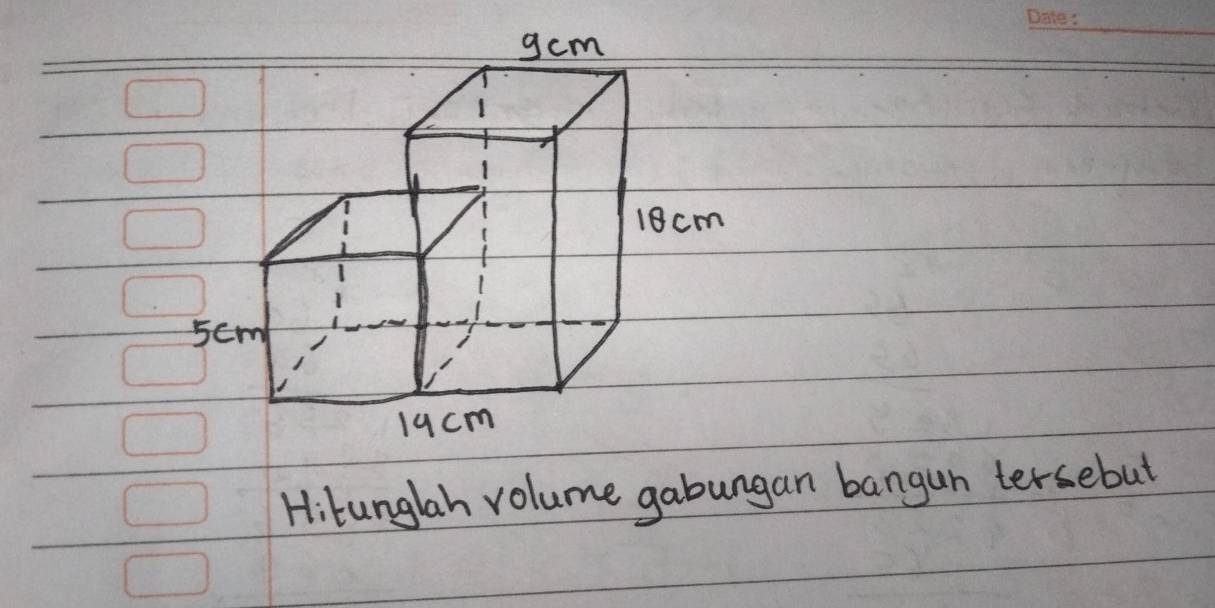 Date:
9cm
18cm
5cm
14cm
Hitunglah volume gabungan bangun tersebut